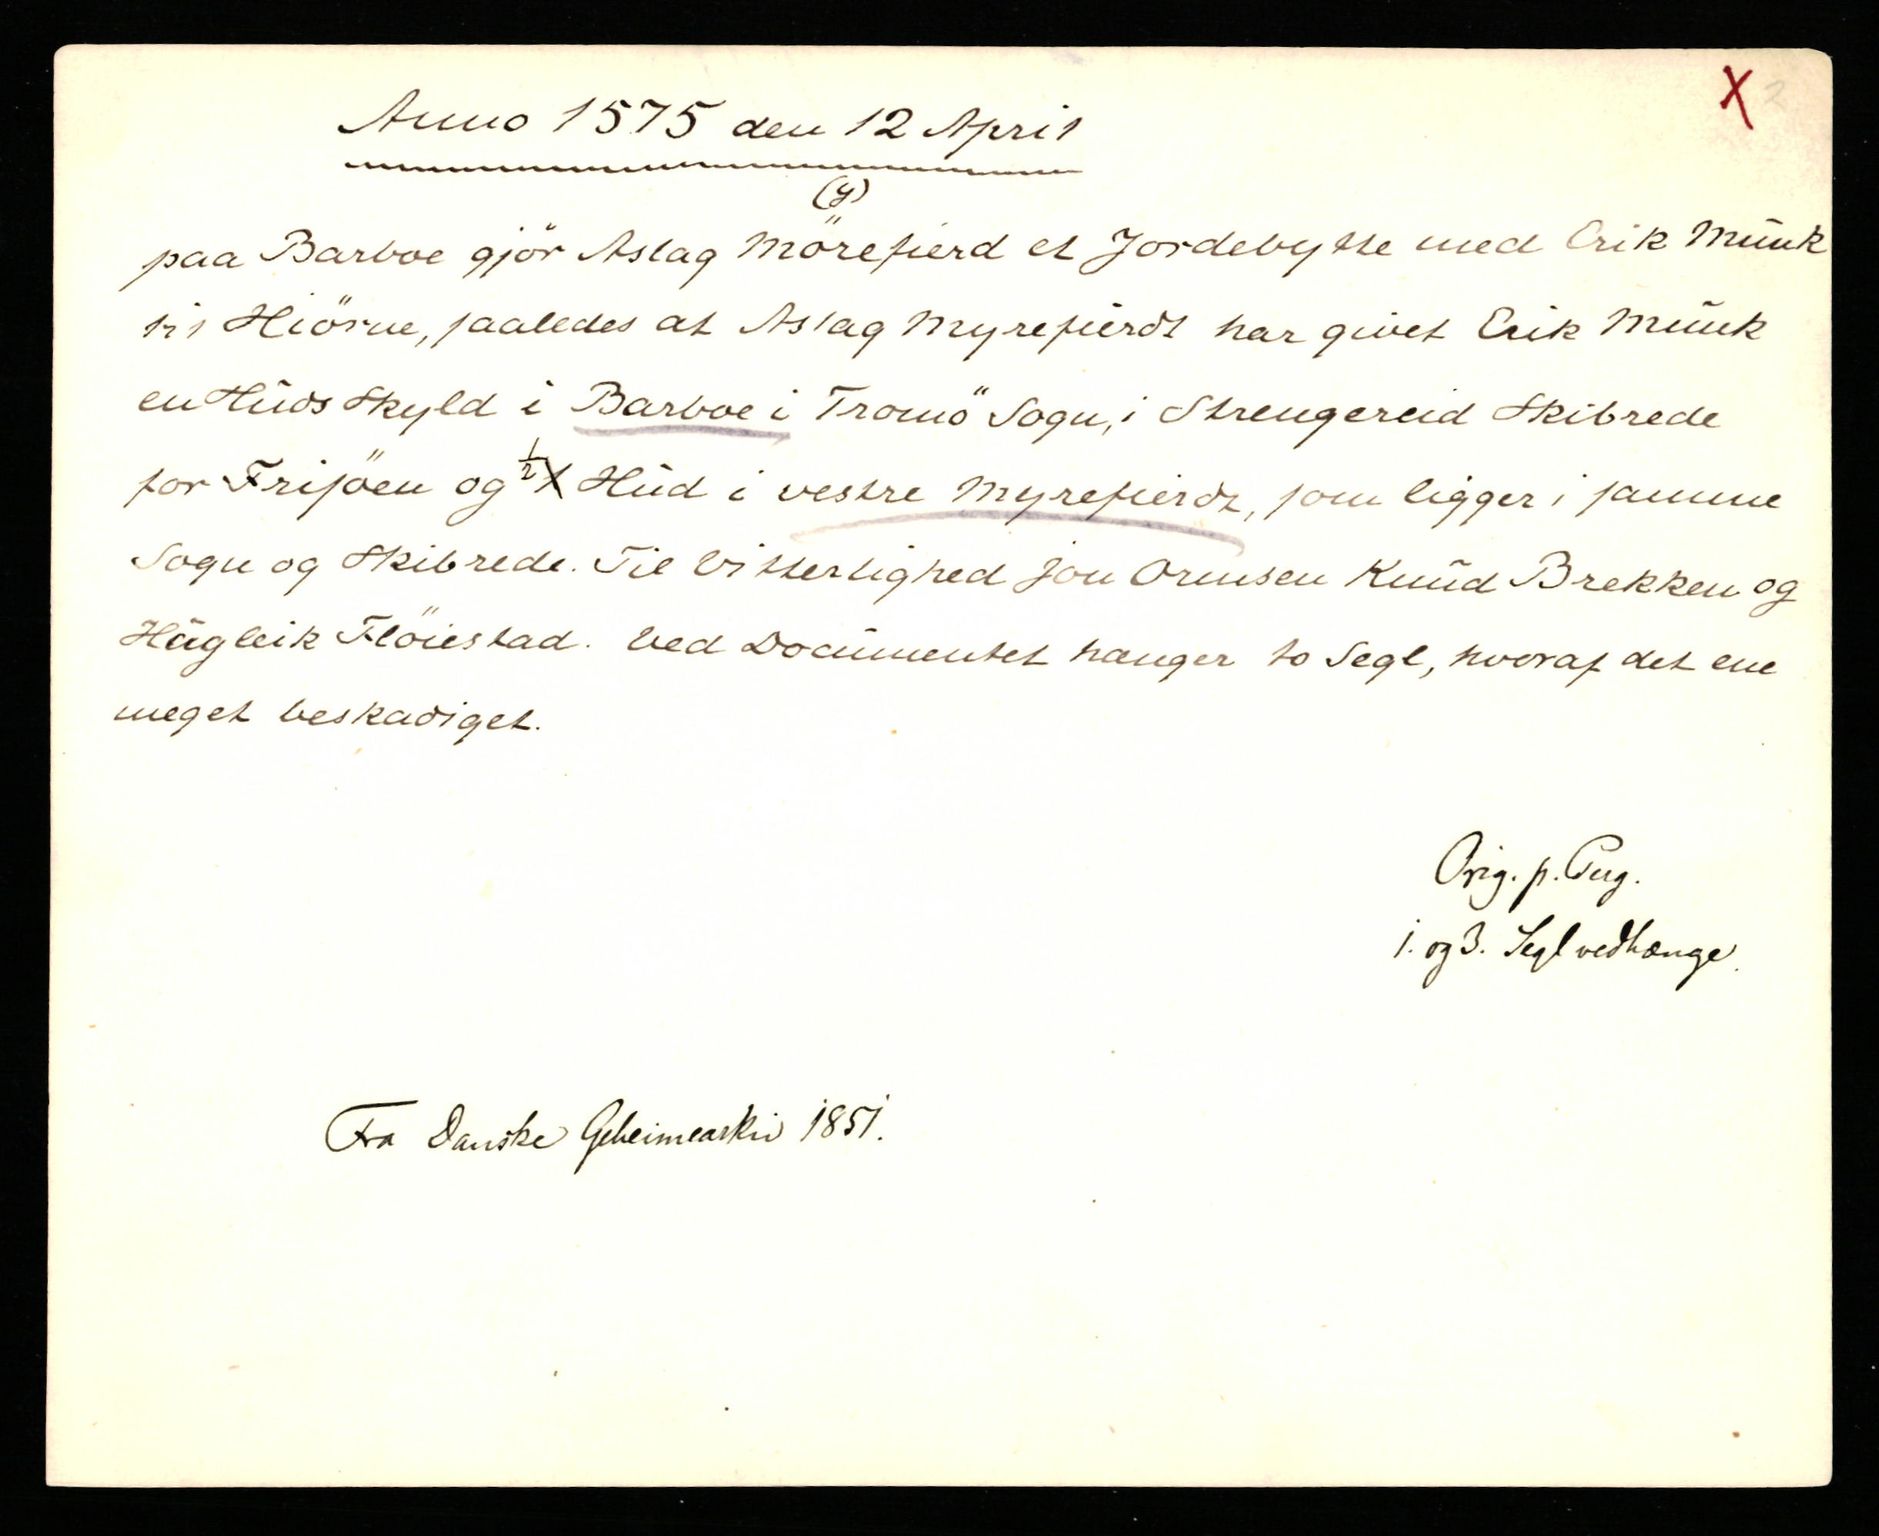 X 2
Anno 1575 den 12 April
(y)
paa Barboe gjör Aslag Mörefierd et Jordebytte med Erik Munk
til Hiörne, saaledes at Aslag Myrefierdt har givet Erik Munk
en Huds Skyld i Barboe i Tromö Sogn, i Strengereid Skibrede
for Frisöen og 1/2 Hud i vestre Myrefierdt, som ligger i samme
Sogn og Skibrede. Til Vitterlighed Jon Ormsen Knud Brekken og
Hugleik Flöiestad. Ved Documentet hænger to Segl, hvoraf det ene
meget beskadiget.
Orig. p. Perg.
1. og 3. Segl vedhænge.
Fra Danske Geheimearkiv 1851.